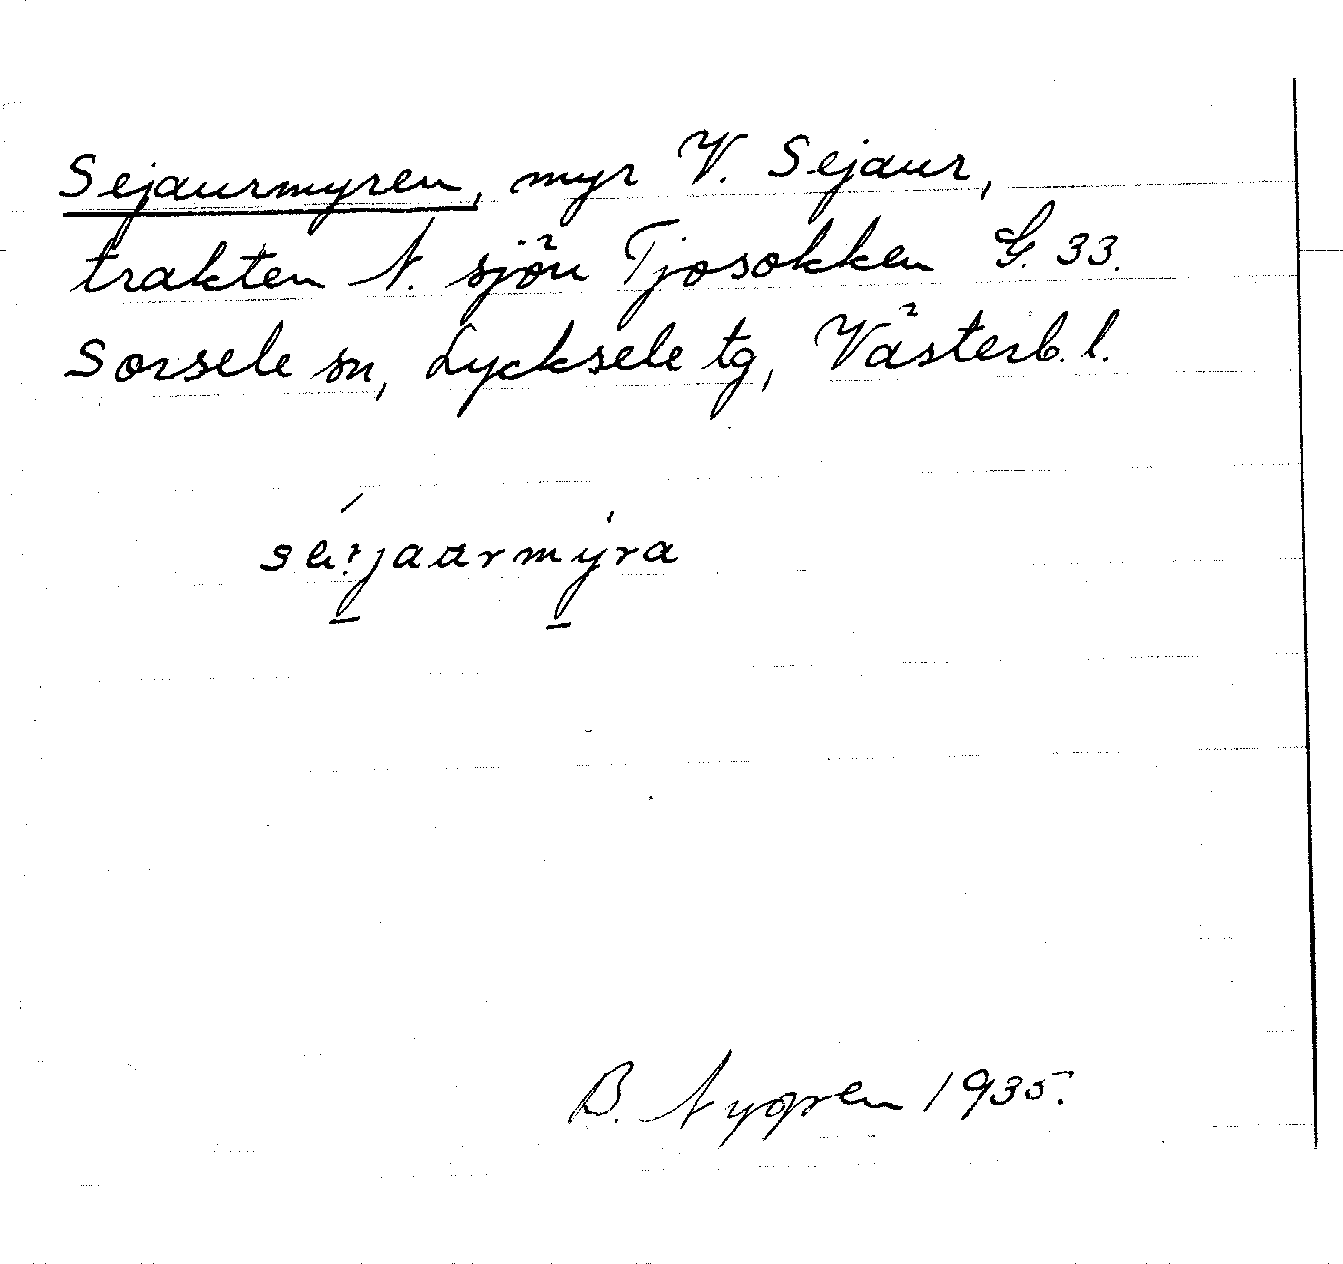 Sejaurmyren, myr V. Sejaur,
trakten N. sjön Tjosokken G. 33.
Sorsele sn, Lycksele tg, Västerb. l.
B. Nygren 1935.